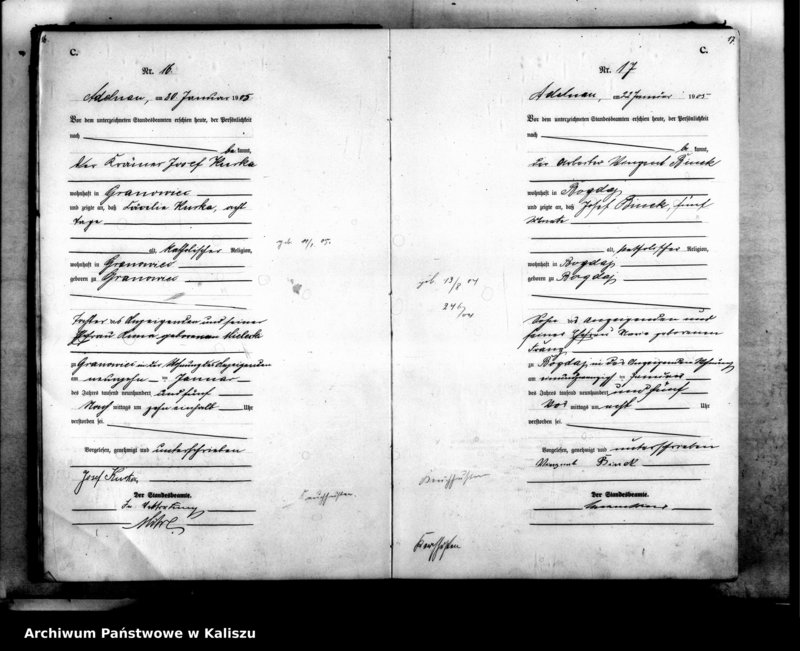 16
C.
Nr. 16
Adelnau, am 20 Januar 1905
Vor dem unterzeichneten Standesbeamten erschien heute, der Persönlichkeit
nach
be kannt,
der Krämer Josef Kurka
wohnhaft in Granowiec
und zeigte an, daß Kurka, acht
Tage
alt, katholischer Religion,
wohnhaft in Granowiec
geboren zu Granowiec
Tochter des Anzeigenden und seiner
Ehefrau geborenen
zu Granowiec in der Wohnung des Anzeigenden
am neunzehn Januar
des Jahres tausend neunhundert und fünf
Nach mittags um zehn einhalb Uhr
verstorben sei.
Vorgelesen, genehmigt und unterschrieben
Josef Kurka
Der Standesbeamte.
In Vertretung
geb. 05.
17
C.
Nr. 17
Adelnau, am Januar 1905
Vor dem unterzeichneten Standesbeamten erschien heute, der Persönlichkeit
nach
be kannt,
der Arbeiter Binek
wohnhaft in Bogdaj
und zeigte an, daß Josef Binek, fünf
Monate
alt, katholischer Religion,
wohnhaft in Bogdaj
geboren zu Bogdaj
Sohn des Anzeigenden und
seiner Ehefrau geborenen
zu Bogdaj in des Anzeigenden Wohnung
am Januar
des Jahres tausend neunhundert und fünf
Vor mittags um acht Uhr
verstorben sei.
Vorgelesen, genehmigt und unterschrieben
Binek
Der Standesbeamte.
geb. 13/8 04
246/04
Keuchhusten
Keuchhusten
Keuchhusten
Archiwum Państwowe w Kaliszu